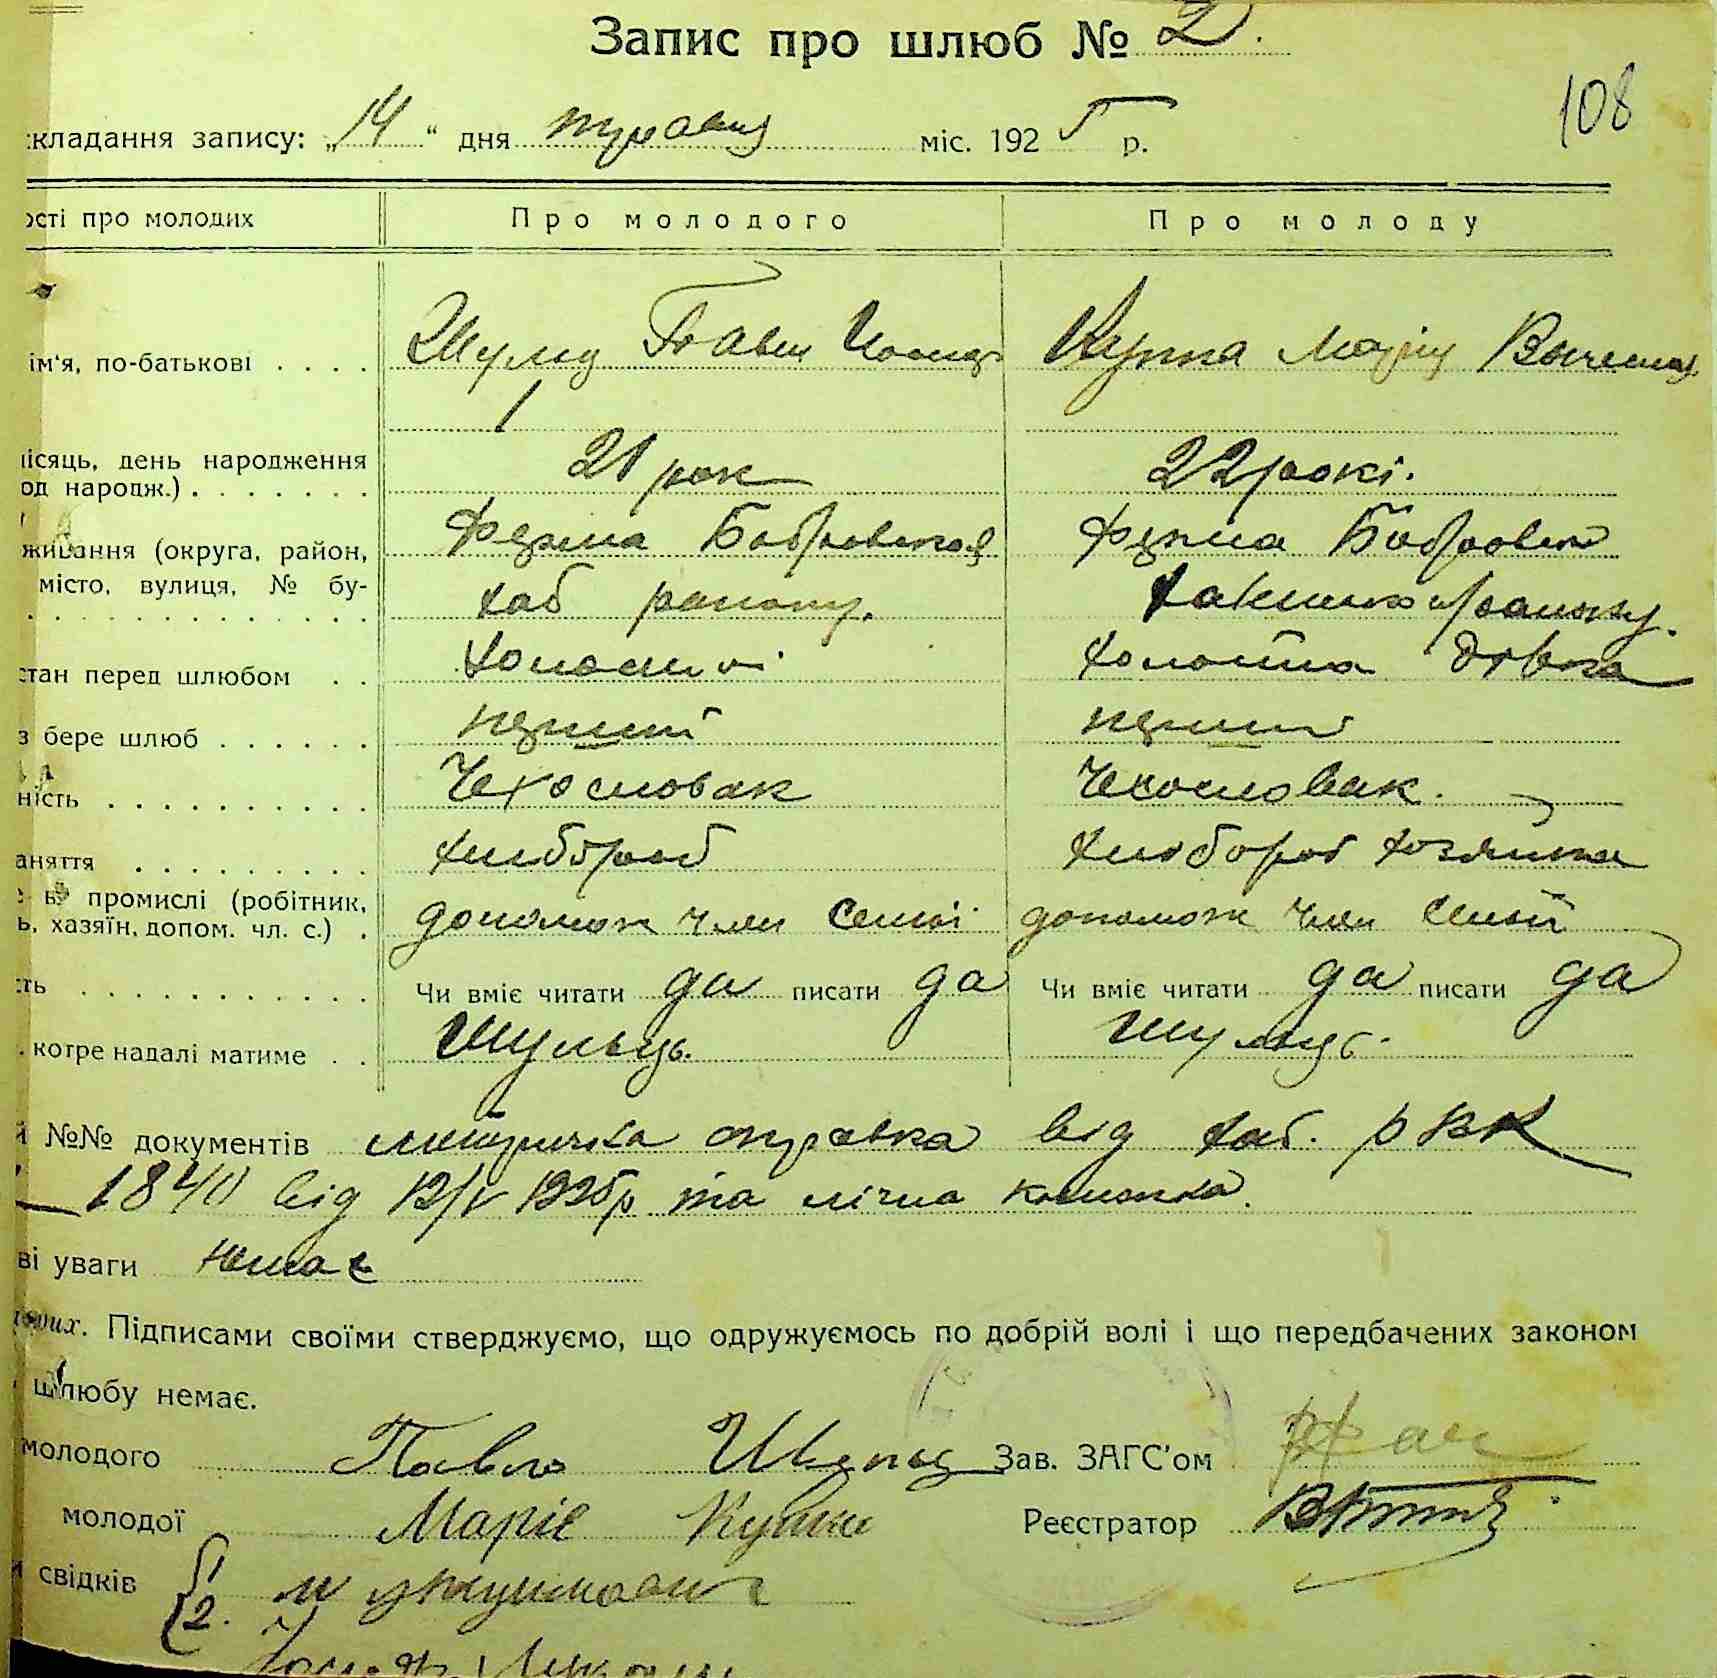 Запис про шлюб № 2.
108
складання запису: „14“ дня травня міс. 1925 р.
ості про молодих Про молодого Про молоду
ім'я, по-батькові . . . . Павел Купка Марія
ісяць, день народження
од народж.) . . . . . . . 21 рок 22 рокі.
живання (округа, район, Ферма Бобровська Ферма Бобровск
місто, вулиця, № бу-
хаб району. району.
стан перед шлюбом . . холостий холоста дівка
з бере шлюб . . . . . . перший перший
ність . . . . . . . . . . . Чехословак Чехословак.
аняття . . . . . . . . . хлібороб хлібороб хозяйка
в промислі (робітник,
ь, хазяїн, допом. чл. с.) . допомож член семьї допомож член семьї
сть . . . . . . . . . . . . Чи вміє читати да писати да Чи вміє читати да писати да
. котре надалі матиме . . Шульць. Шульць.
й №№ документів справка від хаб. РВК
1840 від 12/V 1925р та лічна книжка.
ві уваги немає
дових. Підписами своїми стверджуємо, що одружуємось по добрій волі і що передбачених законом
шлюбу немає.
молодого Павло Зав. ЗАГС'ом
молодої Маріє Купка Реєстратор
свідків 1
2.